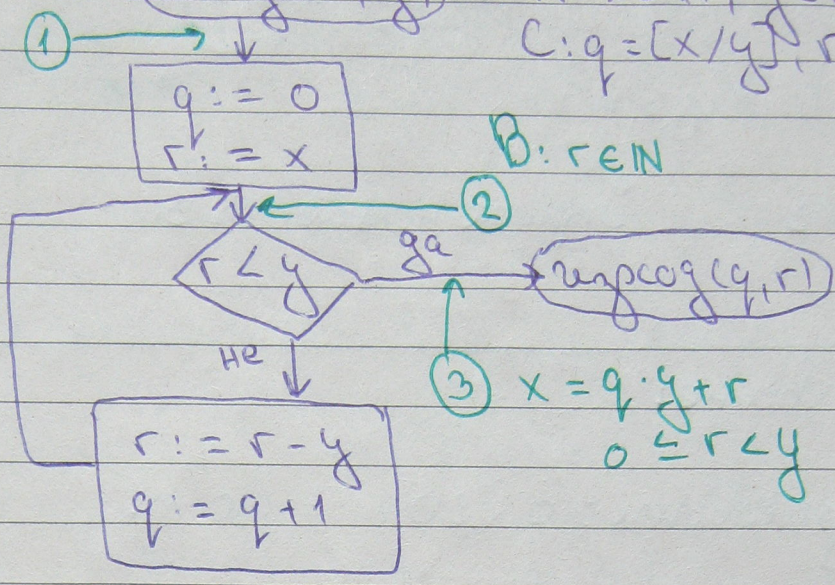 1
C: q = [x/y], r
q := 0
r := x
B: r ∈ ℕ
2
r < y
да
изход(q, r)
не
3
x = q · y + r
0 ≤ r < y
r := r - y
q := q + 1